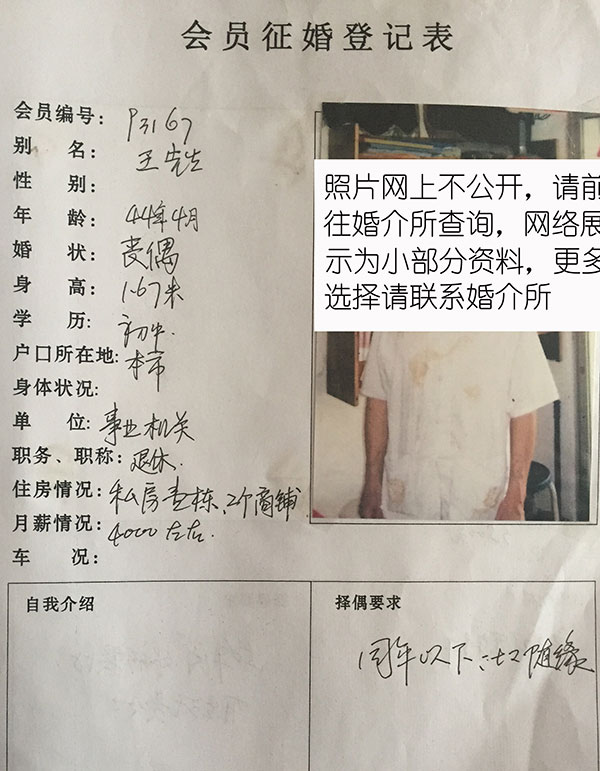 会员征婚登记表
会员编号: P3167
别 名: 王先生
性 别:
年 龄: 44年4月
婚 状: 丧偶
身 高: 1.67米
学 历: 初中.
户口所在地: 本市
身体状况:
单 位: 事业机关
职务、职称: 退休.
住房情况: 私房壹栋、2个商铺
月薪情况: 4000左右.
车 况:
照片网上不公开，请前
往婚介所查询，网络展
示为小部分资料，更多
选择请联系婚介所
自我介绍
择偶要求
同年以下 随缘